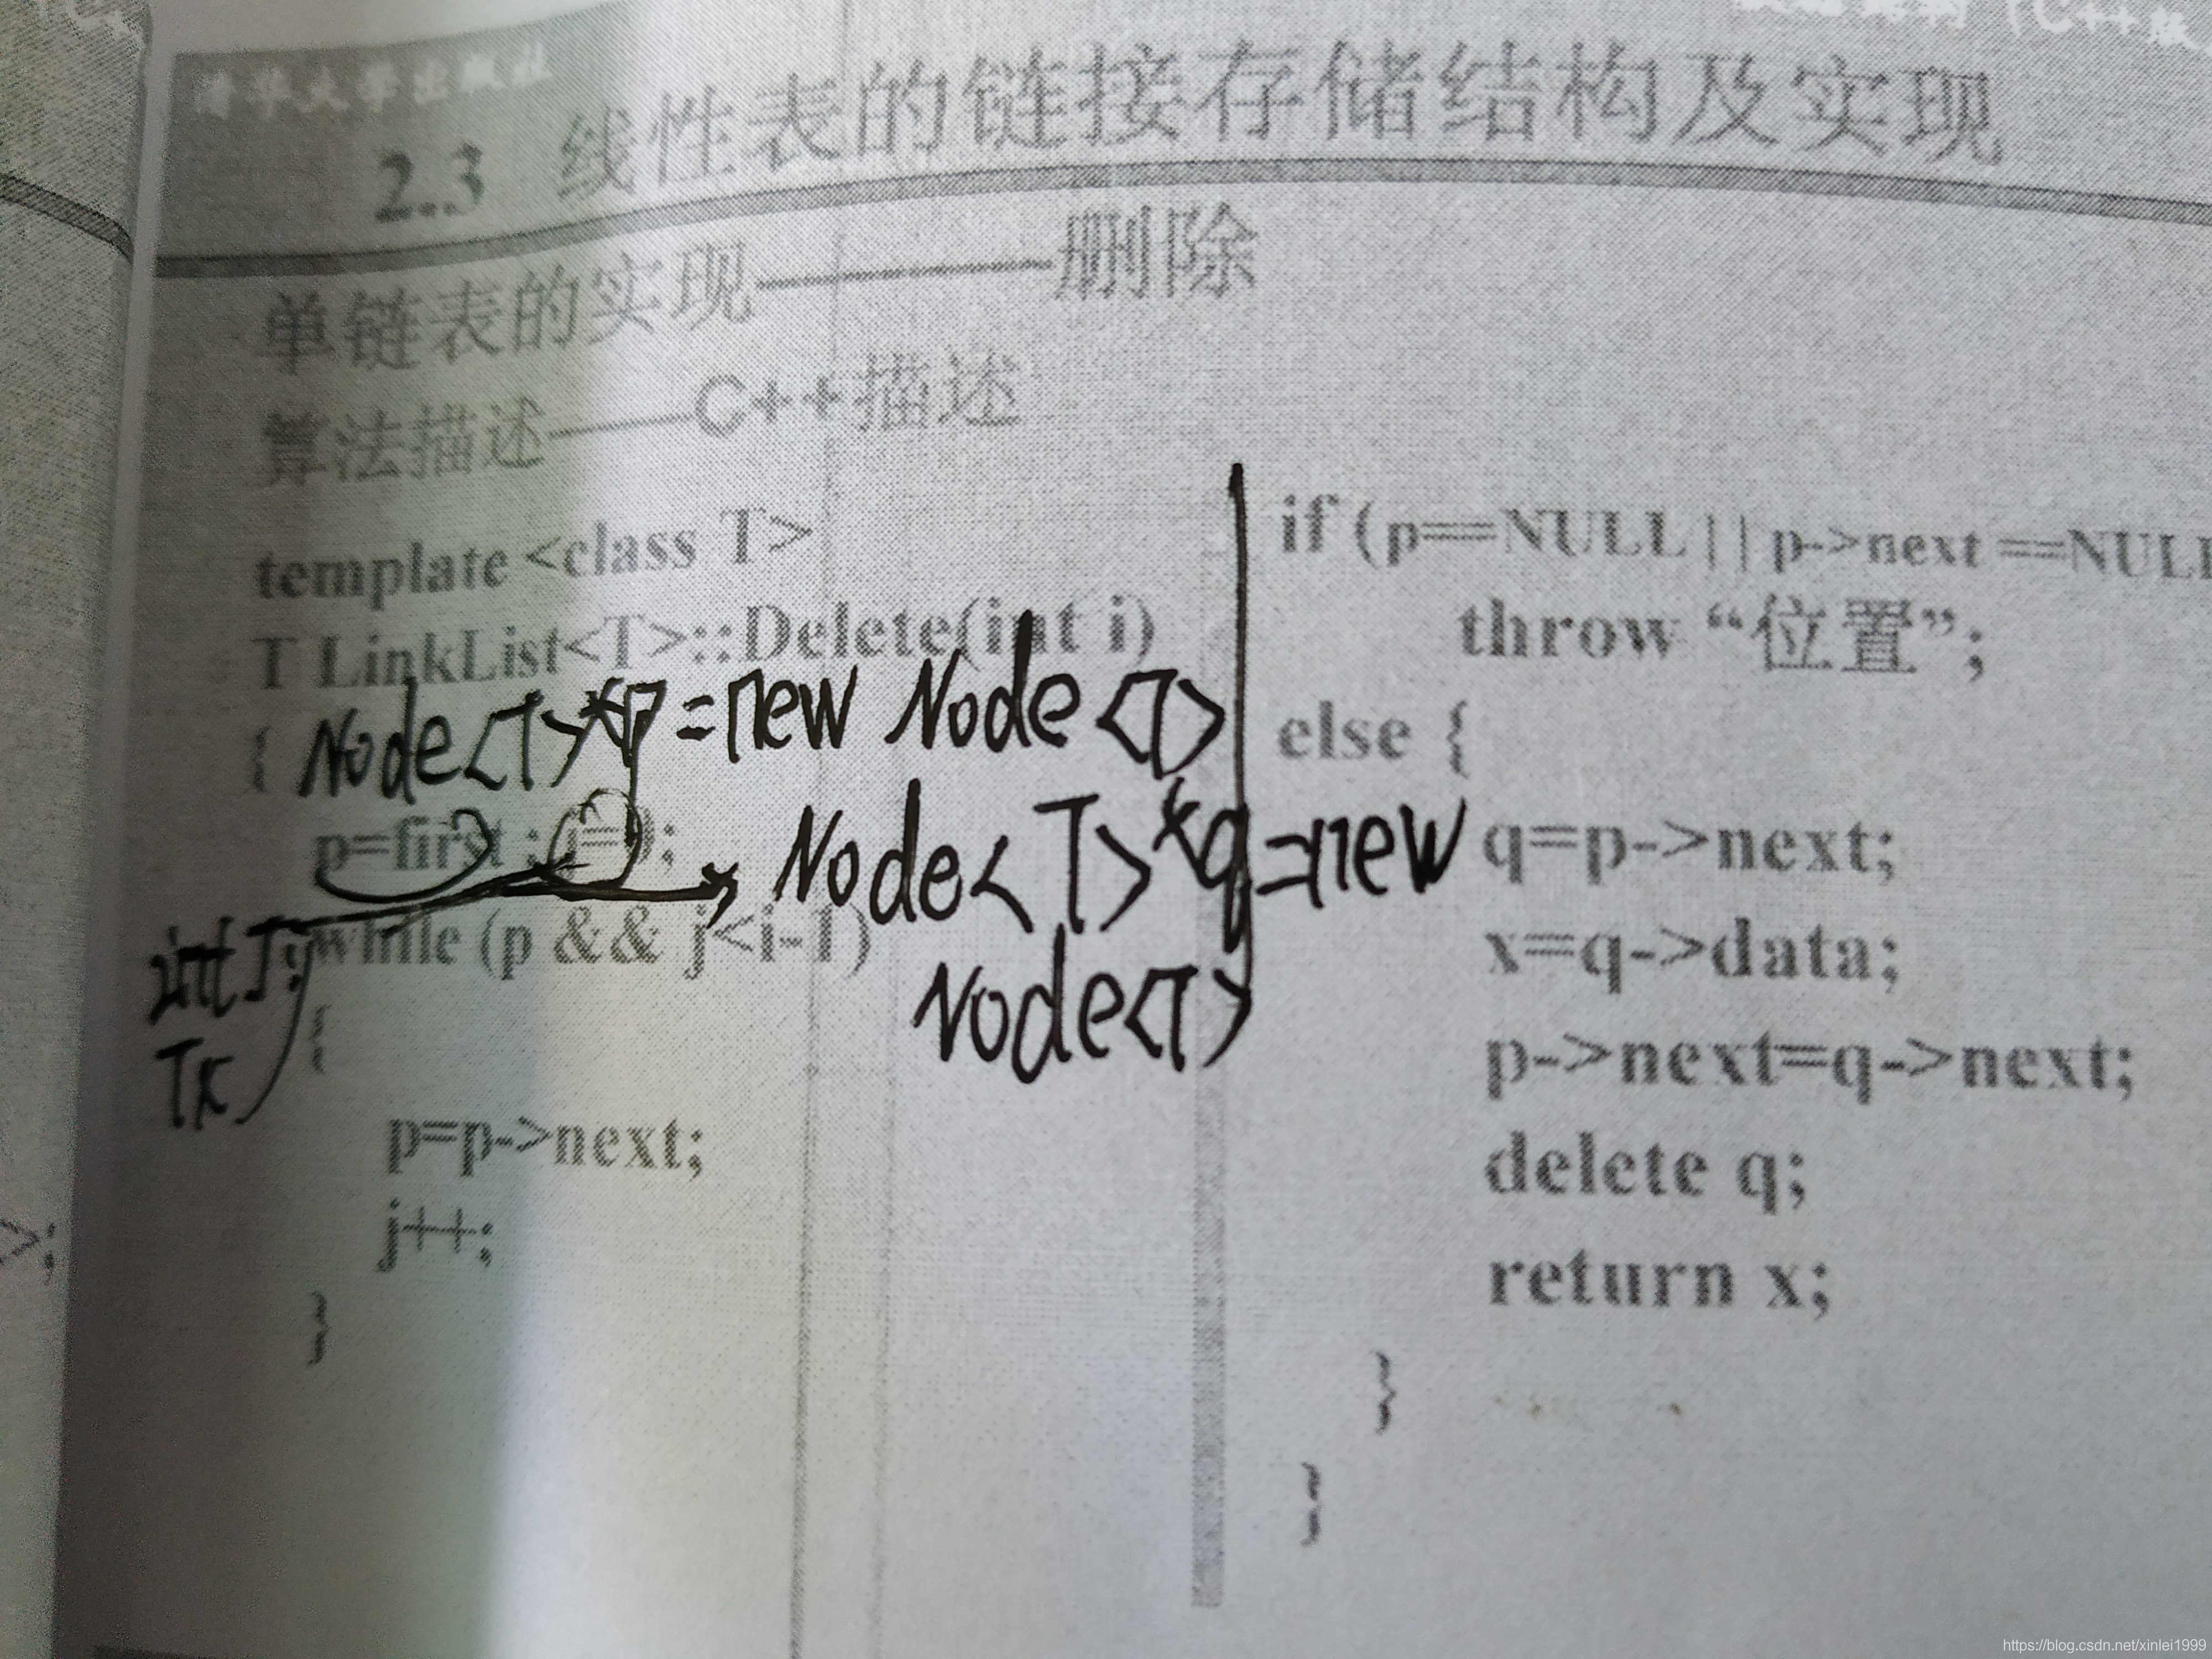 清华大学出版社
(C++版
2.3 线性表的链接存储结构及实现
单链表的实现————删除
算法描述——C++描述
template <class T>
T LinkList<T>::Delete(int i)
{ Node<T>*p=new Node<T>
p=first ; j=0;
Node<T>*q=new
Node<T>
int j;
Tx
while (p && j<i-1)
{
p=p->next;
j++;
}
if (p==NULL || p->next ==NULL
throw “位置”;
else {
q=p->next;
x=q->data;
p->next=q->next;
delete q;
return x;
}
}
>;
https://blog.csdn.net/xinlei1999